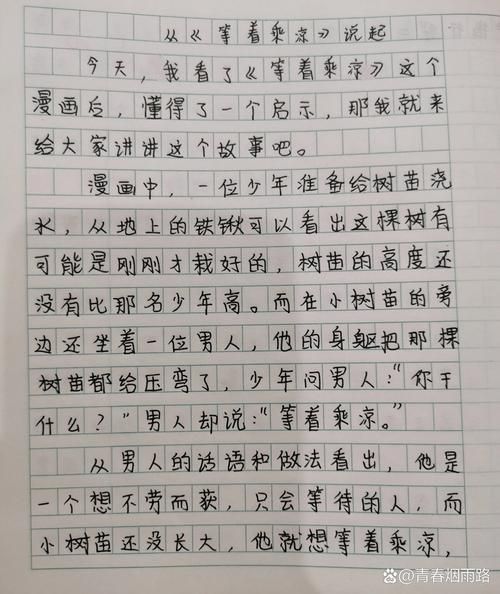 从《等着乘凉》说起
今天，我看了《等着乘凉》这个
漫画后，懂得了一个启示，那我就来
给大家讲讲这个故事吧。
漫画中，一位少年准备给树苗浇
水，从地上的铁锹可以看出这棵树有
可能是刚刚才栽好的，树苗的高度还
没有比那名少年高。而在小树苗的旁
边还坐着一位男人，他的身躯把那棵
树苗都给压弯了，少年问男人：“你干
什么？”男人却说：“等着乘凉。”
从男人的话语和做法看出，他是
一个想不劳而获，只会等待的人，而
小树苗还没长大，他就想等着乘凉，
@青春烟雨路